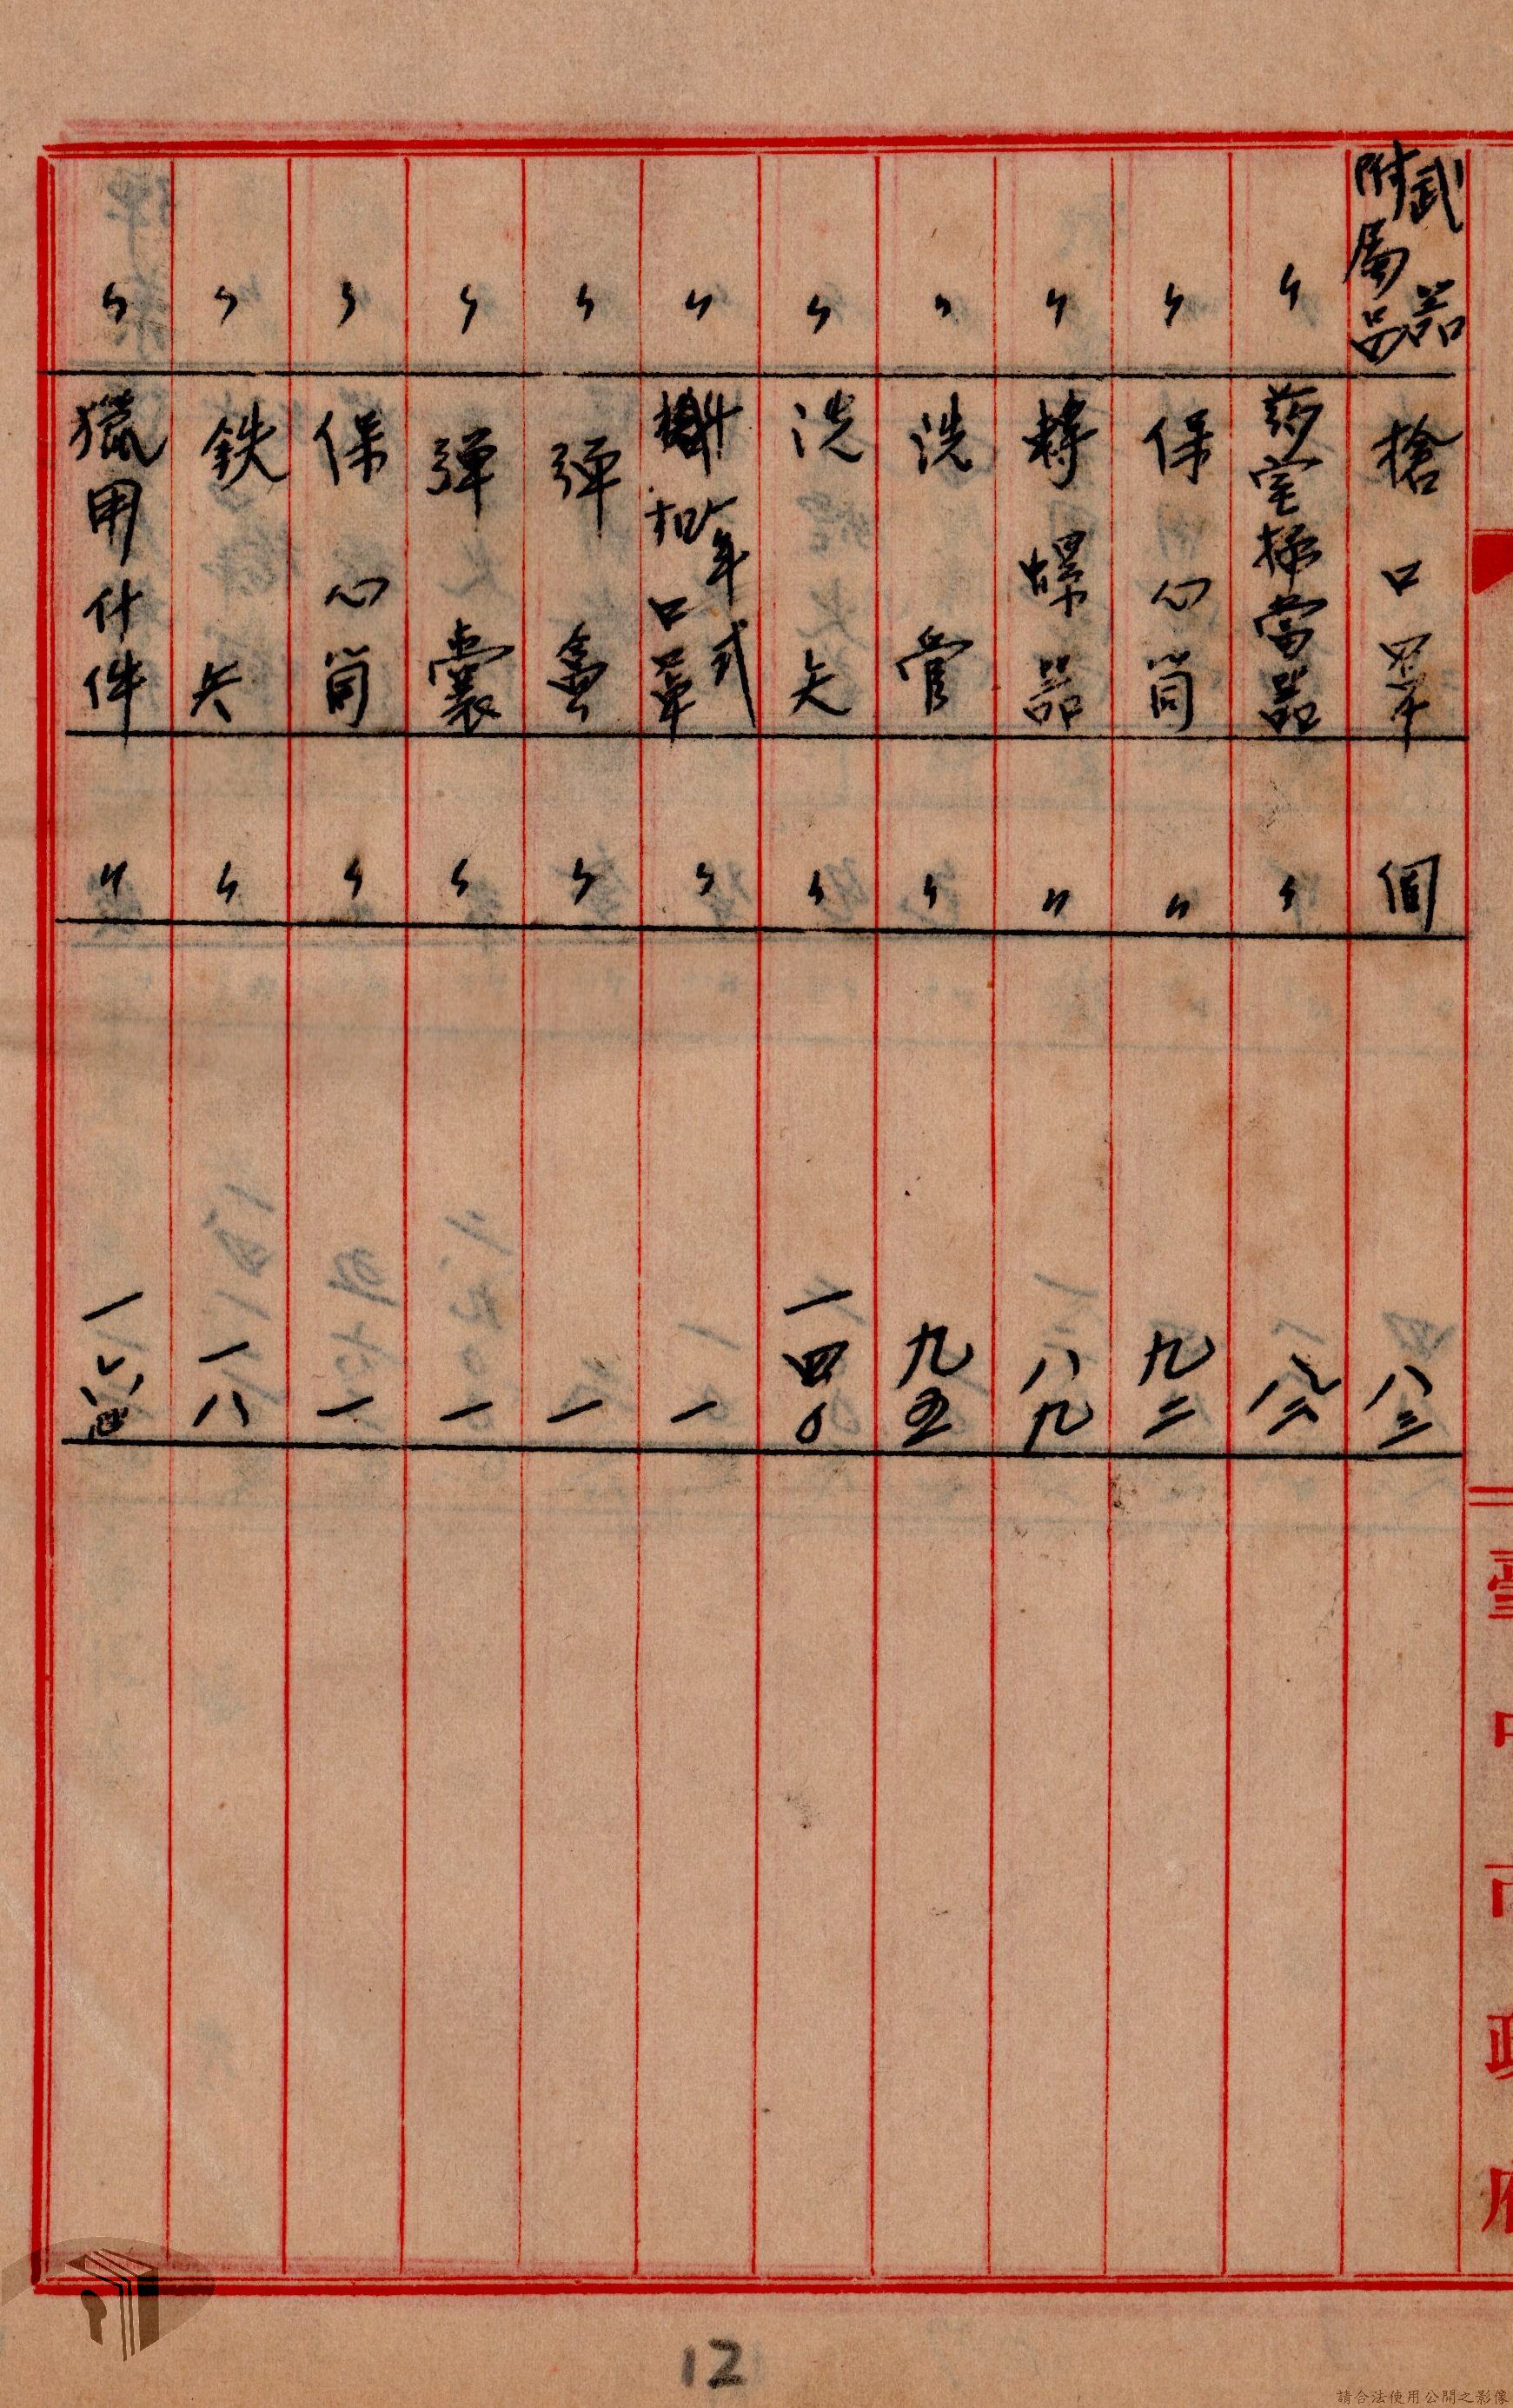 武器附屬品 槍口罩 個 八三
〃 药室掃當器 〃 八二
〃 保心筒 〃 九二
〃 轉螺器 〃 八九
〃 洗管 〃 九五
〃 洗矢 〃 一四〇
〃 年式 口罩 〃 一
〃 彈盒 〃 一
〃 彈囊 〃 一
〃 保心筒 〃 一
〃 鉄兵 〃 一八
〃 獵用什件 〃 一六四
臺中市政府
12
請合法使用公開之影像